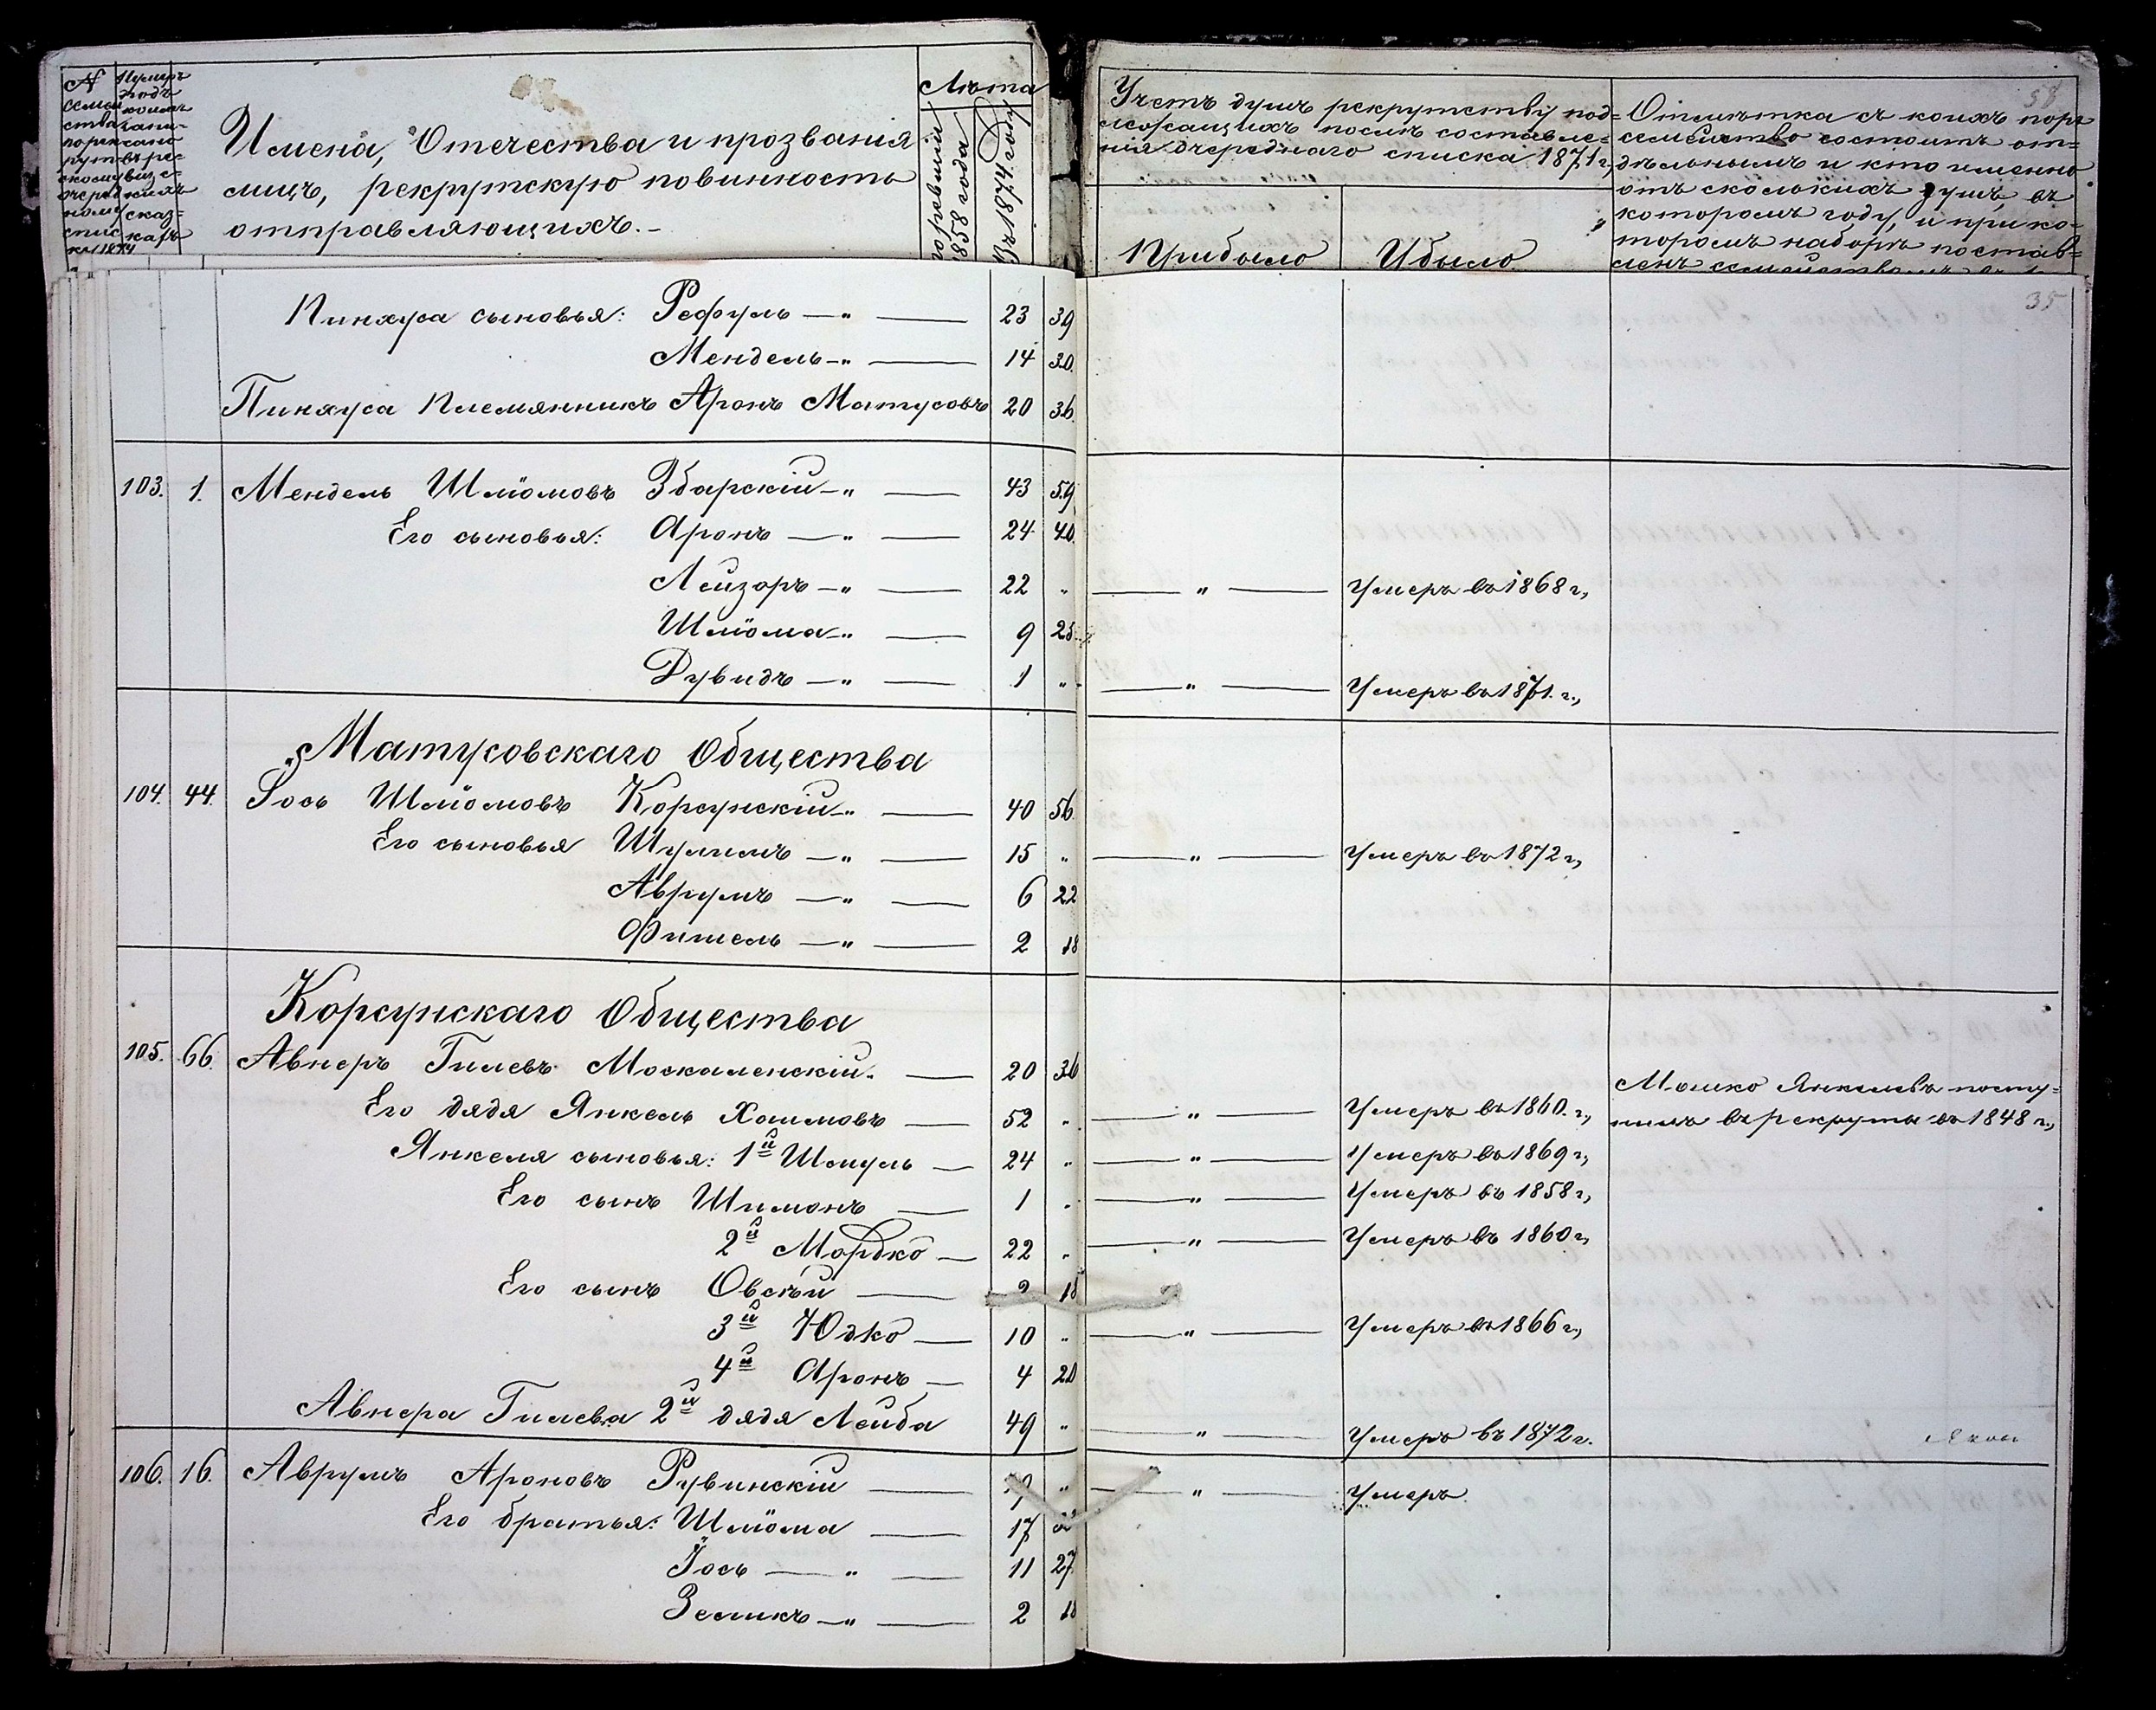 № семейства по рекрутскому очередному списку 1874
Нумеръ подъ коимъ записано въ ревизскихъ сказкахъ
Имена, Отечества и прозванія
лицъ, рекрутскую повинность
отправляющихъ. -
Лѣта
по ревизіи 1858 года
Къ 1874 году
Учетъ душъ рекрутству под=
лежащихъ послѣ составле=
нія очереднаго списка 1871 г,
Прибыло
Убыло
Отмѣтка съ коихъ поръ
семейство состоитъ от=
дѣльнымъ и кто именно
отъ сколькихъ душъ въ
которомъ году, и при ко=
торомъ наборѣ постав=
ленъ
58
35
Пинхуса сыновья: Рефуль —„ — 23 39
Мендель —„ — 14 30.
Пинхуса племянникъ Аронъ Матусовъ 20 36.
103. 1. Мендель Шлiомовъ Збарскій —„ — 43 59
Его сыновья: Аронъ —„ — 24 40.
Лейзоръ —„ — 22 „ — „ — Умеръ въ 1868 г.,
Шлiома —„ — 9 25
Рувидъ —„ — 1 „ — „ — Умеръ въ 1871. г.,
Матусовскаго Общества
104. 44. Iось Шлiомовъ Корсунскій —„ — 40 56.
Его сыновья Шулимъ —„ — 15 „ — „ — Умеръ въ 1872 г.,
Аврумъ —„ — 6 22
Фишель —„ — 2 18
Корсунскаго Общества
105. 66. Авнеръ Гилевъ Москаленскій. — 20 36
Его дядя Янкель Хаимовъ — 52 „ — „ — Умеръ въ 1860. г.,
Мошко Янкелевъ посту=
пилъ въ рекруты въ 1848 г.,
Янкеля сыновья: 1й Шмуль — 24 „ — „ — Умеръ въ 1869 г,
Его сынъ Шимонъ — 1 „ — „ — Умеръ въ 1858 г,
2й Мордко — 22 „ — „ — Умеръ въ 1860 г,
Его сынъ Овсѣй — 2 18
3й Юдко — 10 „ — „ — Умеръ въ 1866 г,
4й Аронъ — 4 20
Авнера Гилева 2й дядя Лейба 49 „ — „ — Умеръ въ 1872 г.
106. 16. Аврумъ Ароновъ Рувинскій — „ — „ — Умеръ.
Его братья: Шлiома — 17
Iось — „ — 11 27.
Зеликъ —„ — 2 18